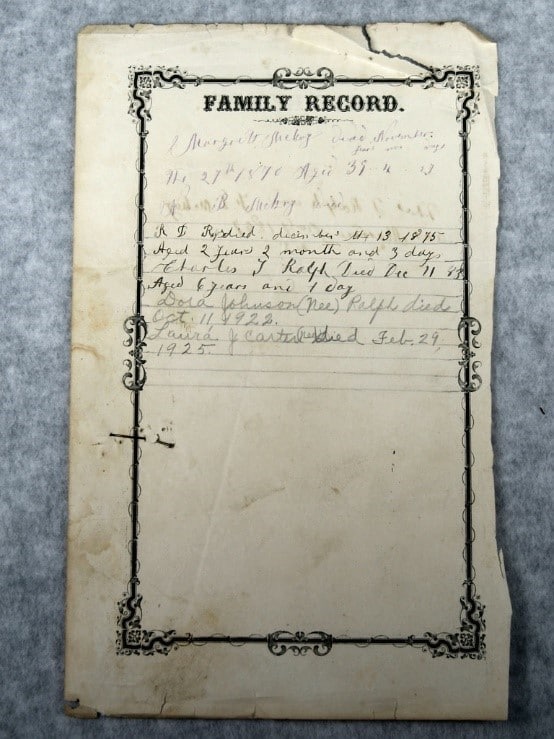 FAMILY RECORD.
Margrett died November
years mos days
the 27th 1870 Aged 39 4 13
died december the 13 1875
Aged 2 years 2 month and 3 days
Charles J Ralph Died Dec 11
Aged 6 years and 1 day
Dora Johnson (Nee) Ralph died
Oct. 11 1922.
Laura J Carter died Feb. 29,
1925.